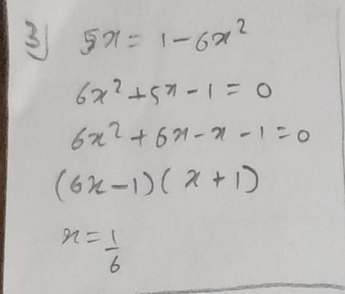 3) 5x = 1 - 6x²
6x² + 5x - 1 = 0
6x² + 6x - x - 1 = 0
(6x - 1)(x + 1)
x = 1/6